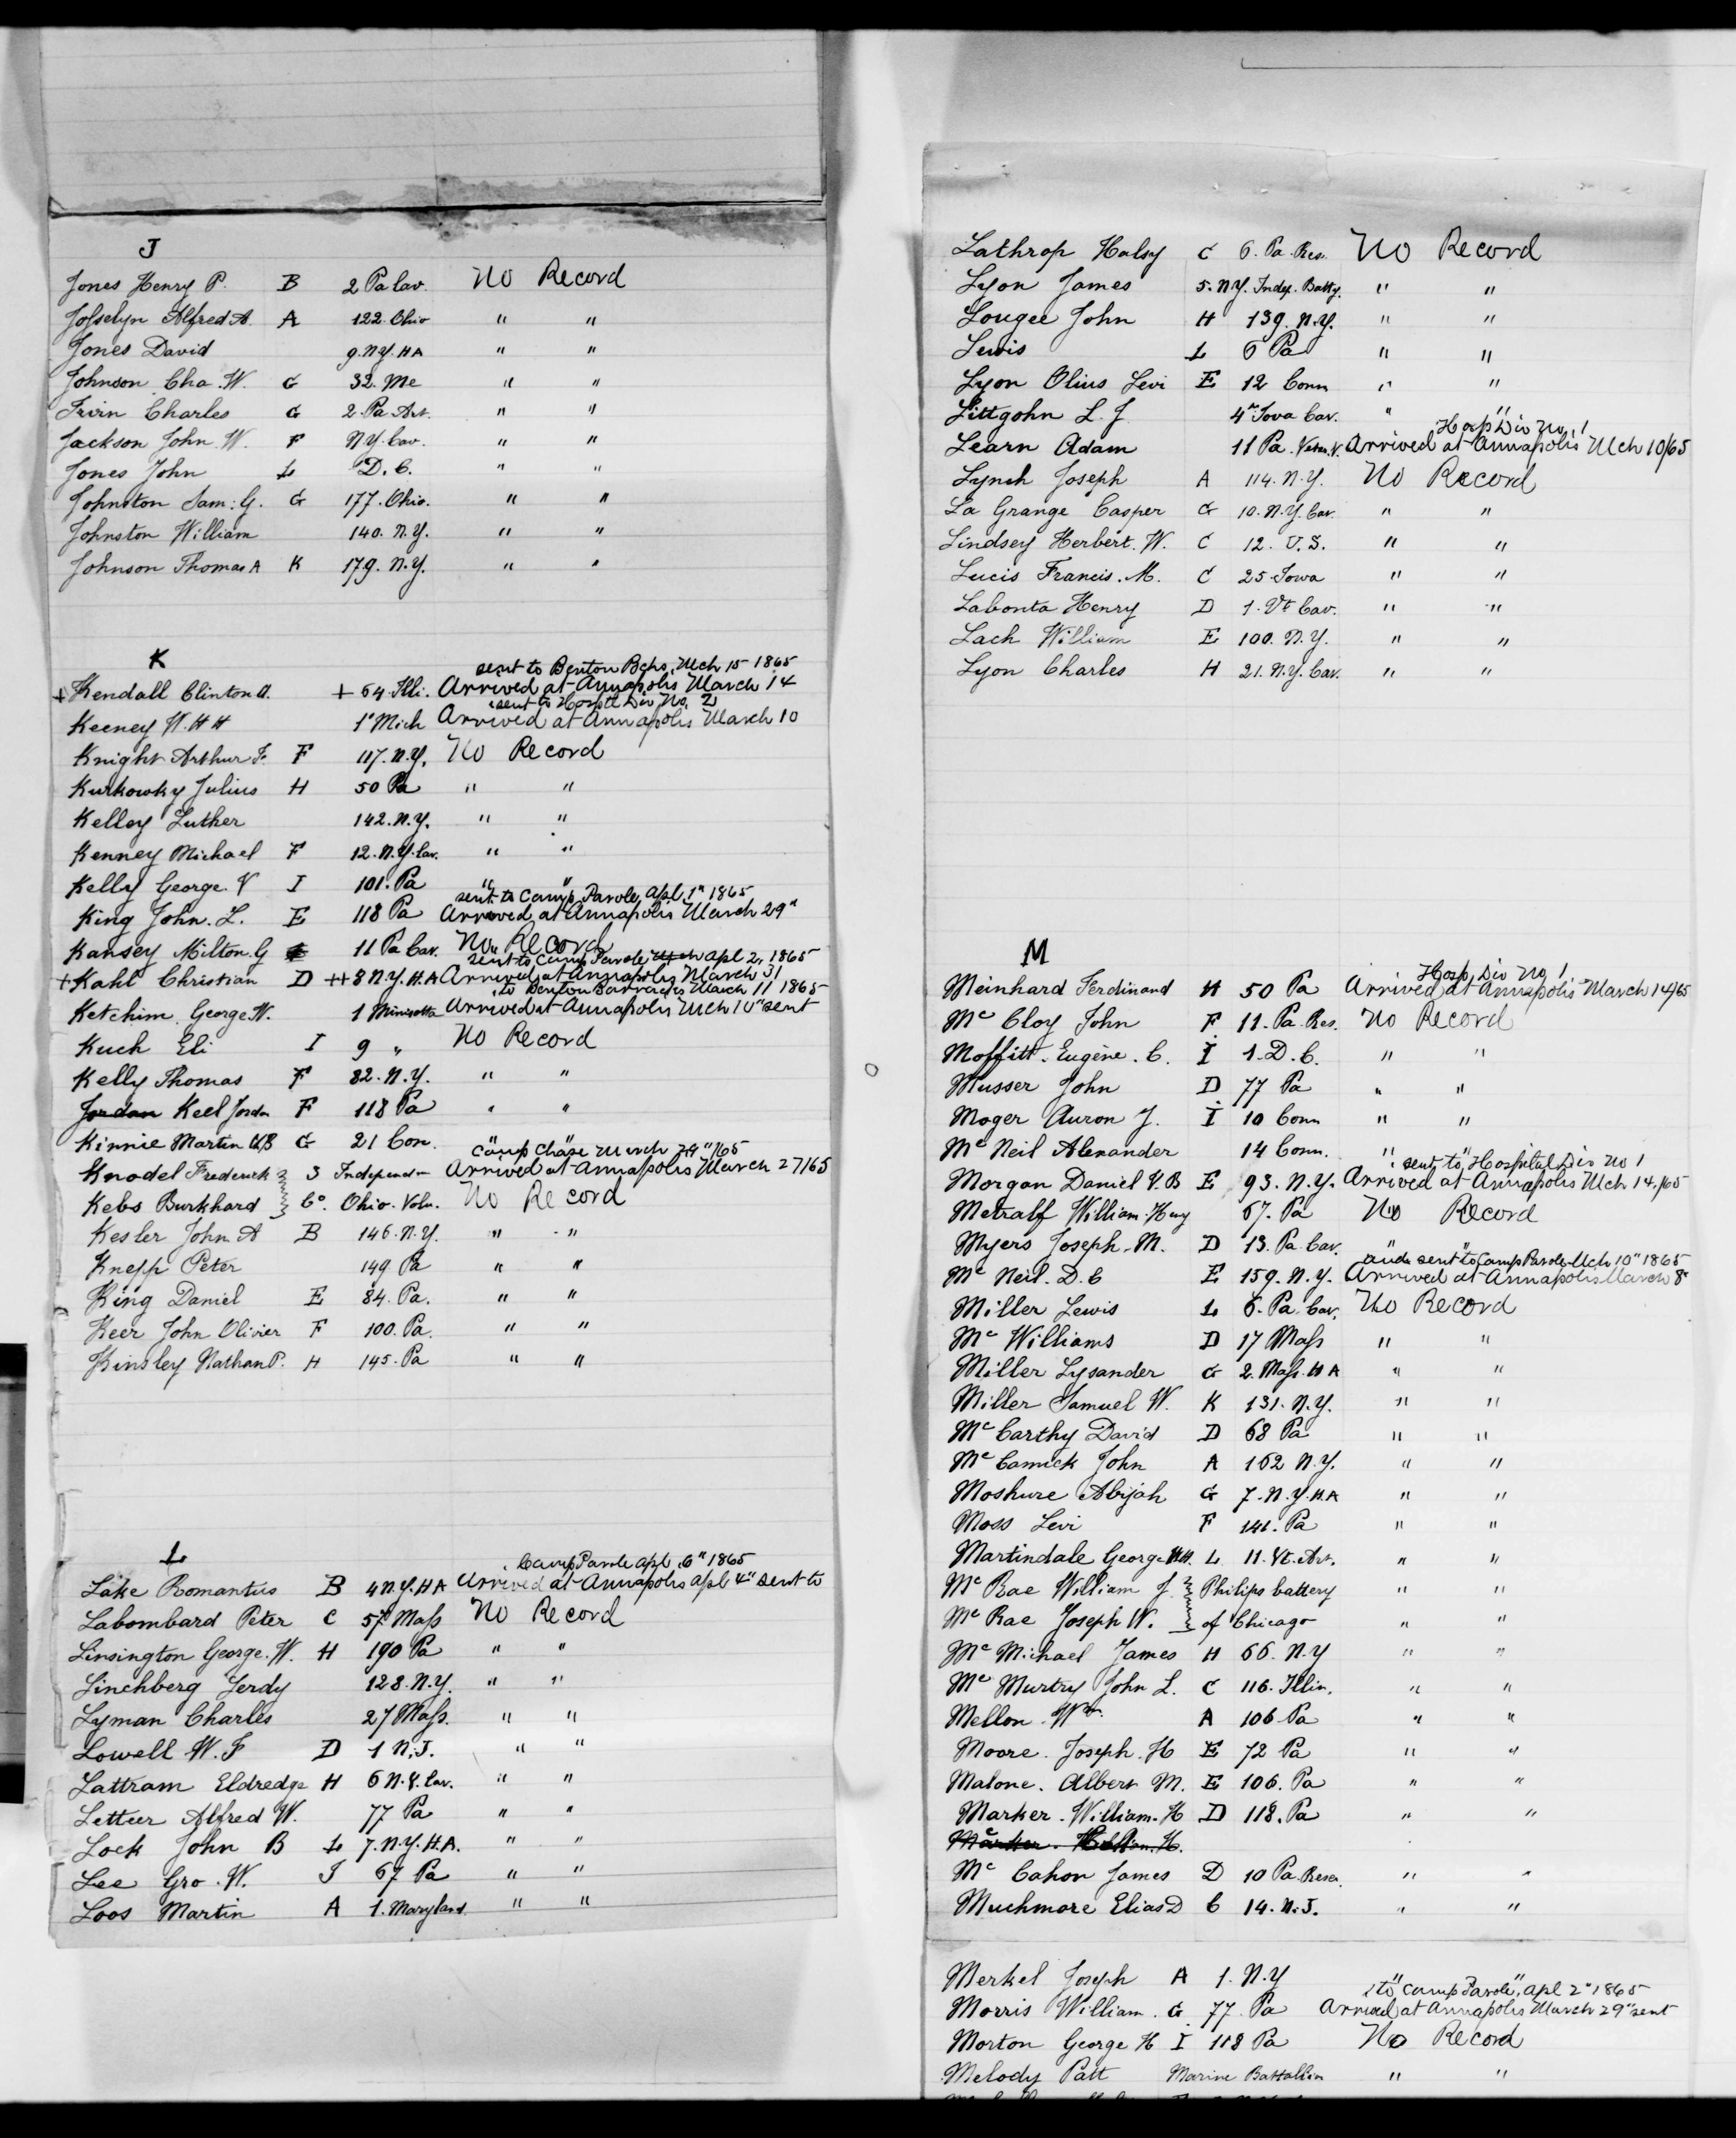 J
Jones Henry P. B 2 Pa Cav. No Record
Josselyn Alfred A. A 122. Ohio " "
Jones David 9. N.Y. H A " "
Johnson Cha. W. G 32. Me " "
Irvin Charles G 2. Pa. Art. " "
Jackson John W. F N Y. Cav. " "
Jones John L D. C. " "
Johnston Sam: G. G 177. Ohio. " "
Johnston William 140. N.Y. " "
Johnson Thomas A K 179. N.Y. " "
K
sent to Benton Bcks. Mch 15 1865
+ Kendall Clinton A. + 64 Illi. Arrived at Annapolis March 14
sent to Hosptl Div No. 2
Keeney W. H H 1" Mich Arrived at Annapolis March 10
Knight Arthur F. F 117. N.Y. No Record
Kurkowky Julius H 50 Pa " "
Kelley Luther 142. N.Y. " "
Kenney Michael F 12. N.Y. Cav. " "
Kelly George V I 101. Pa " "
sent to Camp Parole, Apl 1" 1865
King John. L. E 118 Pa Arrived at Annapolis March 29"
Kansey Milton. G 11 Pa Cav. No Record
sent to Camp Parole Mch Apl 2, 1865
+ Kahl Christian D ++ 8 N.Y. H.A Arrived at Annapolis March 31
to Benton Barracks March 11 1865
Ketchim George W. 1 Minisotta Arrived at Annapolis Mch 10" sent
Kuch Eli I 9 " No Record
Kelly Thomas F 82. N.Y. " "
Jordan Keel Jordan F 118 Pa " "
Kinnie Martin G 21 Con. " "
Camp Chase March 1/65
Knodel Frederick 3 Independn Arrived at Annapolis March 27/65
Kebs Burkhard Co. Ohio. Voln. No Record
Kesler John A B 146. N.Y. " "
Knepp Peter 149 Pa " "
King Daniel E 84. Pa. " "
Keer John Olivier F 100. Pa. " "
Kinsley Nathan P. H 145. Pa " "
L
Camp Parole Apl. 6" 1865
Lake Romantus B 4 N.Y. H A Arrived at Annapolis Apl 4" sent to
Labombard Peter C 57 Mass No Record
Linsington George. W. H 190 Pa " "
Linchberg Ferdy 128. N.Y. " "
Lyman Charles 27 Mass. " "
Lowell W. F D 1 N. J. " "
Lattram Eldredge H 6 N.Y. Cav. " "
Letteer Alfred W. 77 Pa " "
Lock John B L 7. N.Y. H.A. " "
Lee Gro. W. I 67 Pa " "
Loos Martin A 1. Maryland " "
Lathrop Halsy C 6. Pa. Res. No Record
Lyon James 5. N.Y. Indep. Batty. " "
Lougee John H 139. N.Y. " "
Lewis L 6 Pa " "
Lyon Olius Levi E 12 Conn " "
Littgohn L. J. 4" Iowa Cav. " "
Hosp Div No. 1
Learn Adam 11 Pa. Vetn. V. Arrived at Annapolis Mch 10/65
Lynch Joseph A 114. N.Y. No Record
La Grange Casper G 10. N.Y. Cav. " "
Lindsey Herbert. W. C 12. U.S. " "
Lucis Francis. M. C 25 Iowa " "
Labonta Henry D 1. Vt Cav. " "
Lach William E 100. N.Y. " "
Lyon Charles H 21. N.Y. Cav. " "
M
Hosp Div No 1
Meinhard Ferdinand H 50 Pa Arrived at Annapolis March 14/65
Mc Cloy John F 11. Pa. Res. No Record
Moffitt. Eugène. C. I 1. D. C. " "
Musser John D 77 Pa " "
Moger Auron J. I 10 Conn " "
Mc Neil Alexander 14 Conn. "
sent to Hospital Div No 1
Morgan Daniel V. B E 93. N.Y. Arrived at Annapolis Mch 14/65
Metralf William Hery 67. Pa No Record
Myers Joseph. M. D 13. Pa. Cav. " "
and sent to Camp Parole Mch 10" 1865
Mc Neil. D. C E 159. N.Y. Arrived at Annapolis March 8"
Miller Lewis L 6. Pa Cav. No Record
Mc Williams D 17 Mass " "
Miller Lysander G 2. Mass. H A " "
Miller Samuel W. K 131. N.Y. " "
Mc Carthy David D 68 Pa " "
Mc Camick John A 162 N.Y. " "
Moshure Abijah G 7. N.Y. H.A " "
Moss Levi F 141. Pa " "
Martindale George H.H. L 11. Vt. Art. " "
Mc Rae William J. Philips battery " "
Mc Rae Joseph W. of Chicago " "
Mc Michael James H 66. N.Y " "
Mc Murtry John L. C 116. Illin. " "
Mellon Wm. A 106 Pa " "
Moore. Joseph. H E 72 Pa " "
Malone. Albert M. E 106. Pa " "
Marker. William. H D 118. Pa " "
Marker. William. H.
Mc Cahon James D 10 Pa. Reser. " "
Muchmore Elias D C 14. N. J. " "
Merkel Joseph A 1. N.Y
to "Camp Parole", Apl 2" 1865
Morris William. G. 77. Pa Arrived at Annapolis March 29" sent
Morton George H I 118 Pa No Record
Melody Patt Marine Battallion " "